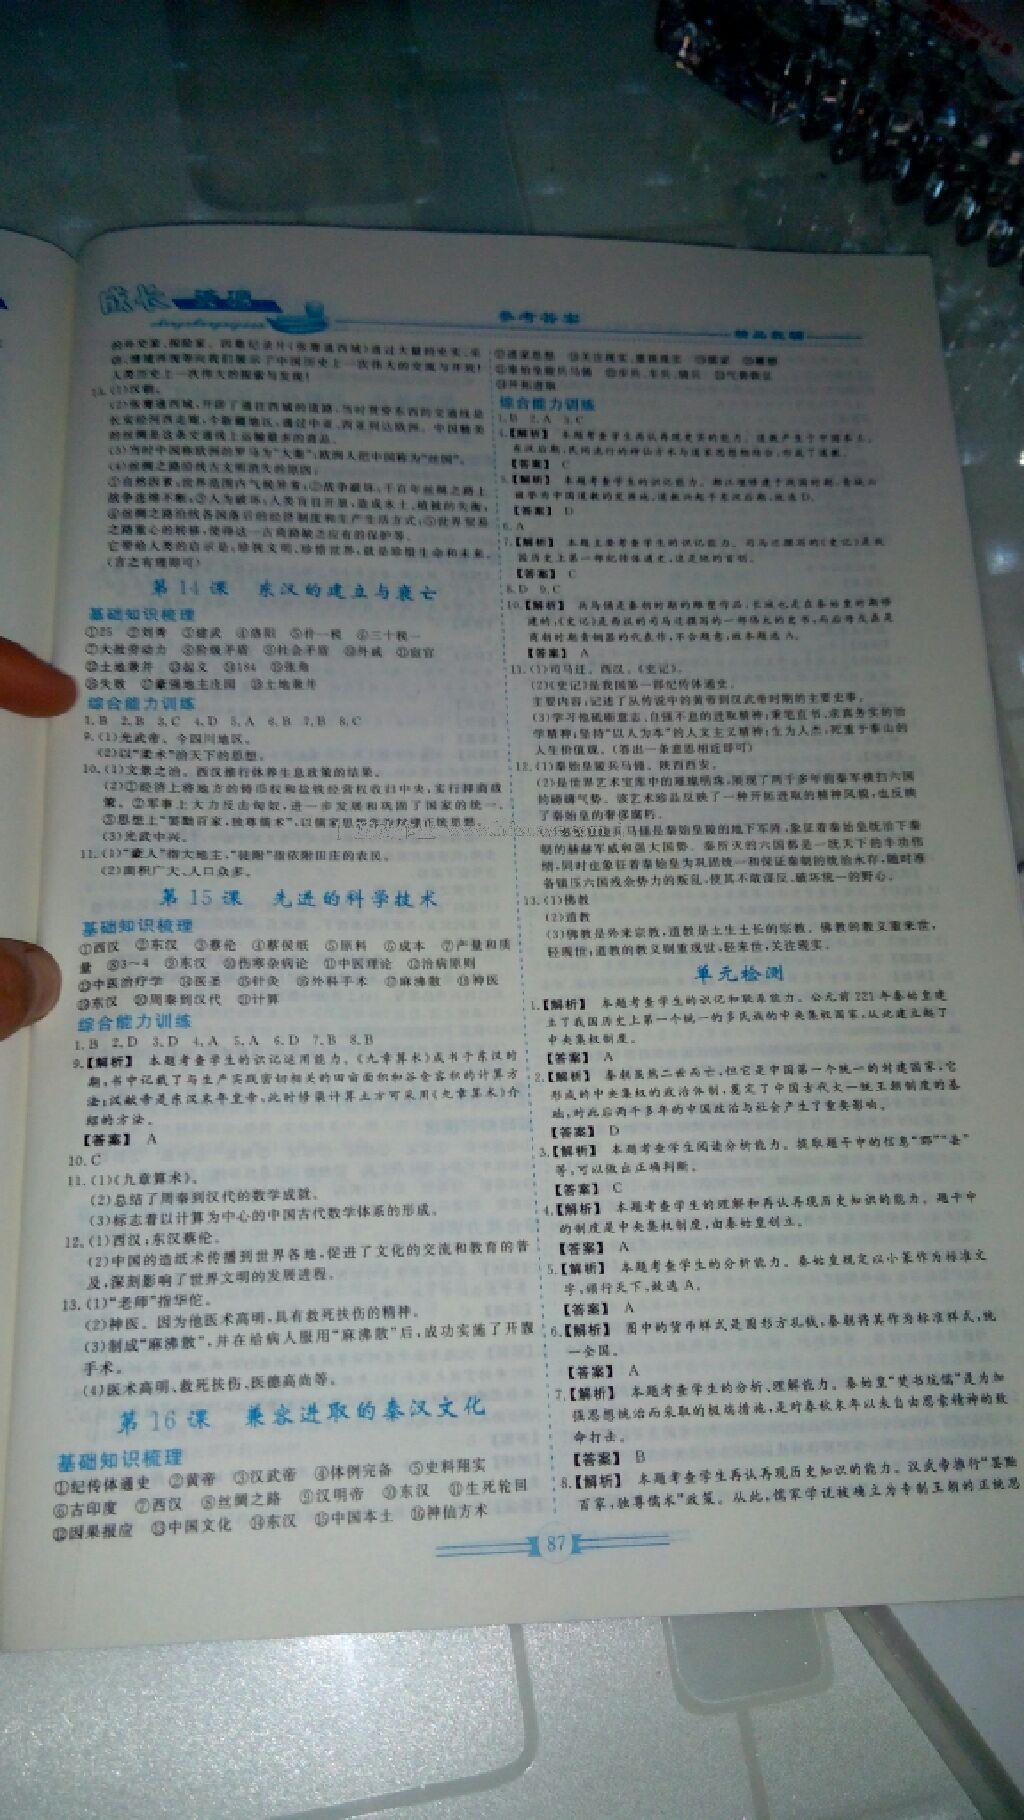 成长
参考答案
的外史家、探险家。四集纪录片《张骞通西域》通过大量的史实、采
访、情境再现等向我们展示了中国历史上一次伟大的交流与开放!
人类历史上一次伟大的探索与发现!
13.(1)汉朝。
(2)张骞通西域,开辟了通往西域的道路,当时贯穿东西的交通线是
长安经河西走廊、今新疆地区,通过中亚、西亚到达欧洲。中国精美
的丝绸是这条交通线上运输最多的商品。
(3)当时中国称欧洲的罗马为“大秦”;欧洲人把中国称为“丝国”。
(4)丝绸之路沿线古文明消失的原因:
①自然因素:世界范围内气候异常;②战争破坏:千百年丝绸之路上
战争连绵不断;③人为破坏:人类盲目开垦,造成水土、植被的失衡;
④丝绸之路沿线各国落后的经济制度和生产生活方式;⑤世界贸易
之路重心的转移,使得这一古商路缺乏应有的保护等。
它带给人类的启示是:珍视文明,珍惜世界,就是珍惜生命和未来。
(言之有理即可)
第 14 课 东汉的建立与衰亡
基础知识梳理
①25 ②刘秀 ③建武 ④洛阳 ⑤什一税 ⑥三十税一
⑦大批劳动力 ⑧阶级矛盾 ⑨社会矛盾 ⑩外戚 ⑪宦官
⑫土地兼并 ⑬起义 ⑭184 ⑮张角
⑯失败 ⑰豪强地主庄园 ⑱土地兼并
综合能力训练
1.B 2.B 3.C 4.D 5.A 6.B 7.B 8.C
9.(1)光武帝。今四川地区。
(2)以“柔术”治天下的思想。
10.(1)文景之治。西汉推行休养生息政策的结果。
(2)①经济上将地方的铸币权和盐铁经营权收归中央,实行抑商政
策。②军事上大力反击匈奴,进一步发展和巩固了国家的统一。
③思想上“罢黜百家,独尊儒术”,以儒家思想
(3)光武中兴。
11.(1)“豪人”指大地主,“徒附”指依附田庄的农民。
(2)面积广大、人口众多。
第 15 课 先进的科学技术
基础知识梳理
①西汉 ②东汉 ③蔡伦 ④蔡侯纸 ⑤原料 ⑥成本 ⑦产量和质
量 ⑧3~4 ⑨东汉 ⑩伤寒杂病论 ⑪中医理论 ⑫治病原则
⑬中医治疗学 ⑭医圣 ⑮针灸 ⑯外科手术 ⑰麻沸散 ⑱神医
⑲东汉 ⑳周秦到汉代 ㉑计算
综合能力训练
1.B 2.D 3.D 4.A 5.A 6.D 7.B 8.B
9.【解析】 本题考查学生的识记运用能力。《九章算术》成书于东汉时
期,书中记载了与生产实践密切相关的田亩面积和谷仓容积的计算方
法;汉献帝是东汉末年皇帝,此时修渠计算土方可采用《九章算术》介
绍的方法。
【答案】 A
10.C
11.(1)《九章算术》。
(2)总结了周秦到汉代的数学成就。
(3)标志着以计算为中心的中国古代数学体系的形成。
12.(1)西汉;东汉蔡伦。
(2)中国的造纸术传播到世界各地,促进了文化的交流和教育的普
及,深刻影响了世界文明的发展进程。
13.(1)“老师”指华佗。
(2)神医。因为他医术高明,具有救死扶伤的精神。
(3)制成“麻沸散”,并在给病人服用“麻沸散”后,成功实施了开腹
手术。
(4)医术高明、救死扶伤、医德高尚等。
第 16 课 兼容进取的秦汉文化
基础知识梳理
①纪传体通史 ②黄帝 ③汉武帝 ④体例完备 ⑤史料翔实
⑥古印度 ⑦西汉 ⑧丝绸之路 ⑨汉明帝 ⑩东汉 ⑪生死轮回
⑫因果报应 ⑬中国文化 ⑭东汉 ⑮中国本土 ⑯神仙方术
⑰道家思想 ⑱关注现实、重视现实
㉑秦始皇陵兵马俑 ㉒步兵、车兵、骑兵 ㉓气势磅礴
㉔开拓进取
综合能力训练
1.B 2.A 3.C
4.【解析】 本题考查学生再认再现史实的能力。道教产生于中国本土。
东汉后期,民间流行的神仙方术与道家思想相结合,形成了道教。
【答案】 C
5.【解析】 本题考查学生的识记能力。都江堰修建于战国时期;青城山
被誉为中国道教的发源地,道教兴起于东汉后期,故选 D。
【答案】 D
6.A
7.【解析】 本题主要考查学生的识记能力。司马迁撰写的《史记》是我
国历史上第一部纪传体通史,这是他的首创。
【答案】 C
8.D 9.C
10.【解析】 兵马俑是秦朝时期的雕塑作品;长城也是在秦始皇的期修
建的;《史记》是西汉的司马迁撰写的一部伟大的史书;司后母戊鼎是
商朝时期青铜器的代表作,不合题意;故本题选 A。
【答案】 A
11.(1)司马迁。西汉。《史记》。
(2)《史记》是我国第一部纪传体通史。
主要内容:记述了从传说中的黄帝到汉武帝时期的主要史事。
(3)学习他砥砺意志、自强不息的进取精神;秉笔直书、求真务实的治
学精神;坚持“以人为本”的人文主义精神;生为人杰,死重于泰山的
人生价值观。(答出一条意思相近即可)
12.(1)秦始皇陵兵马俑。陕西西安。
(2)是世界艺术宝库中的璀璨明珠,展现了两千多年前秦军横扫六国
的磅礴气势。该艺术珍品反映了一种开拓进取的精神风貌,也反映
了秦始皇的奢侈腐朽。
兵马俑是秦始皇陵的地下军阵,象征着秦始皇统治下秦
朝的赫赫军威和强大国势。秦所灭的六国都是一统天下的丰功伟
绩,同时也象征着秦始皇为巩固统一和保证秦朝的统治永存,随时准
备镇压六国残余势力的叛乱,使其不敢谋反、破坏统一的野心。
13.(1)佛教
(2)道教
(3)佛教是外来宗教,道教是土生土长的宗教。佛教的教义重来世,
轻现世;道教的教义则重现世、轻来世,关注现实。
单元检测
1.【解析】 本题考查学生的识记和联系能力。公元前 221 年秦始皇建
立了我国历史上第一个统一的多民族的中央集权国家,从此建立起了
中央集权制度。
【答案】 A
2.【解析】 秦朝虽然二世而亡,但它是中国第一个统一的封建国家,它
形成的中央集权的政治体制,奠定了中国古代大一统王朝制度的基
础,对此后两千多年的中国政治与社会产生了重要影响。
【答案】 D
3.【解析】 本题考查学生阅读分析能力。提取题干中的信息“郡”“县”
等,可以做出正确判断。
【答案】 C
4.【解析】 本题考查学生的理解和再认再现历史知识的能力。题干中
的制度是中央集权制度,由秦始皇创立。
【答案】 A
5.【解析】 本题考查学生的分析能力。秦始皇规定以小篆作为标准文
字,颁行天下,故选 A。
【答案】 A
6.【解析】 图中的货币样式是圆形方孔钱,秦朝将其作为标准样式,统
一全国。
【答案】 A
7.【解析】 本题考查学生的分析、理解能力。秦始皇“焚书坑儒”是为加
强思想统治而采取的极端措施,是对春秋末年以来自由思索精神的致
命打击。
【答案】 B
8.【解析】 本题考查学生再认再现历史知识的能力。汉武帝推行“罢黜
百家,独尊儒术”政策。从此,儒家学说被确立为专制王朝的正统思
87